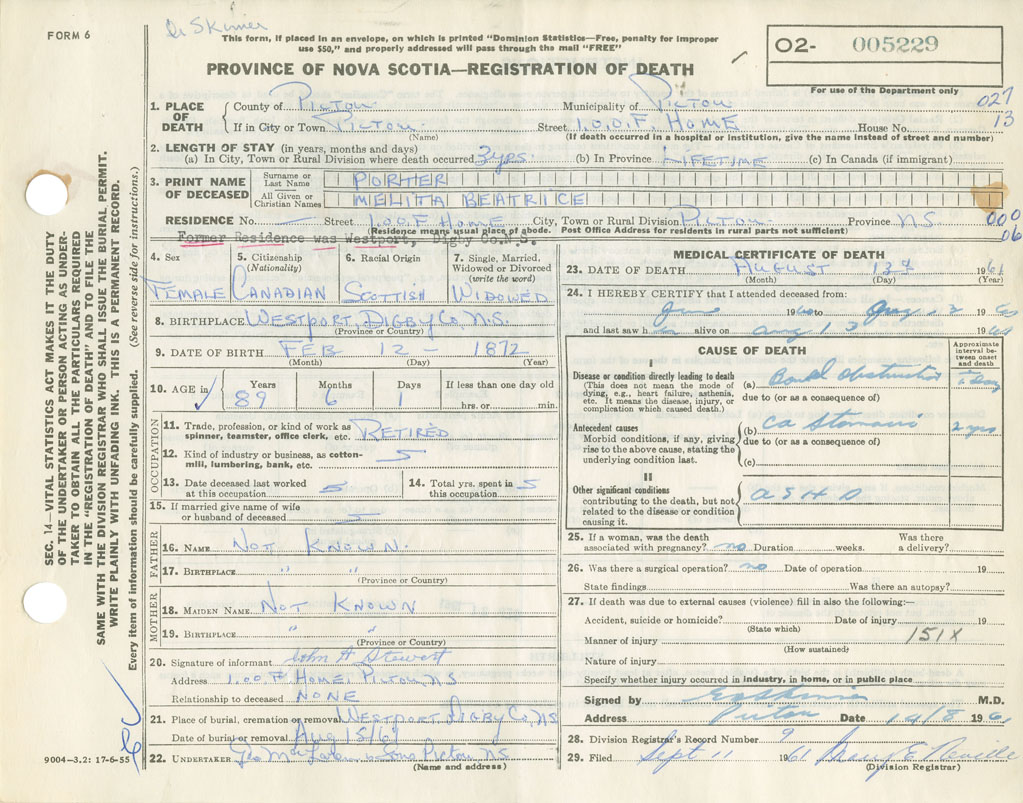 Dr Skinner
FORM 6
This form, if placed in an envelope, on which is printed "Dominion Statistics—Free, penalty for improper
use $50," and properly addressed will pass through the mail "FREE"
O2- 005229
For use of the Department only
PROVINCE OF NOVA SCOTIA—REGISTRATION OF DEATH
027
13
1. PLACE OF DEATH County of PICTOU Municipality of PICTOU
If in City or Town PICTOU Street I.O.O.F. HOME House No.
(Name) (If death occurred in a hospital or institution, give the name instead of street and number)
2. LENGTH OF STAY (in years, months and days)
(a) In City, Town or Rural Division where death occurred 3 yrs. (b) In Province LIFETIME (c) In Canada (if immigrant)
3. PRINT NAME OF DECEASED Surname or Last Name PORTER
All Given or Christian Names MELITA BEATRICE
RESIDENCE No. Street I.O.O.F HOME City, Town or Rural Division PICTOU Province NS
000
06
(Residence means usual place of abode. Post Office Address for residents in rural parts not sufficient)
Former Residence was Westport, Digby Co.N.S.
4. Sex FEMALE
5. Citizenship (Nationality) CANADIAN
6. Racial Origin SCOTTISH
7. Single, Married, Widowed or Divorced (write the word) WIDOWED
8. BIRTHPLACE WESTPORT, DIGBY CO. N.S.
(Province or Country)
9. DATE OF BIRTH FEB 12 - 1872
(Month) (Day) (Year)
10. AGE in Years 89 Months 6 Days 1 If less than one day old hrs. or min.
OCCUPATION
11. Trade, profession, or kind of work as spinner, teamster, office clerk, etc. RETIRED
12. Kind of industry or business, as cotton-mill, lumbering, bank, etc.
13. Date deceased last worked at this occupation
14. Total yrs. spent in this occupation
15. If married give name of wife or husband of deceased
FATHER
16. NAME NOT KNOWN.
17. BIRTHPLACE " "
(Province or Country)
MOTHER
18. MAIDEN NAME NOT KNOWN
19. BIRTHPLACE " "
(Province or Country)
20. Signature of informant John H Stewart
Address I.O.O.F HOME, PICTOU, NS
Relationship to deceased NONE
21. Place of burial, cremation or removal WESTPORT DIGBY CO. NS
Date of burial or removal AUG 15/61
22. UNDERTAKER Pictou N.S.
(Name and address)
MEDICAL CERTIFICATE OF DEATH
23. DATE OF DEATH AUGUST 13th 1961
(Month) (Day) (Year)
24. I HEREBY CERTIFY that I attended deceased from:
June 1960 to 19
and last saw her alive on Aug 13 19
CAUSE OF DEATH
Approximate interval between onset and death
I
Disease or condition directly leading to death
(This does not mean the mode of dying, e.g., heart failure, asthenia, etc. It means the disease, injury, or complication which caused death.)
(a) Bowel Obstruction
due to (or as a consequence of)
Antecedent causes
Morbid conditions, if any, giving rise to the above cause, stating the underlying condition last.
(b) Ca Stomach 2 yrs
due to (or as a consequence of)
(c)
II
Other significant conditions
contributing to the death, but not related to the disease or condition causing it.
A S H D
25. If a woman, was the death associated with pregnancy? no Duration weeks. Was there a delivery?
26. Was there a surgical operation? no Date of operation 19
State findings Was there an autopsy?
27. If death was due to external causes (violence) fill in also the following:—
Accident, suicide or homicide? Date of injury 19
(State which)
151X
Manner of injury
(How sustained)
Nature of injury
Specify whether injury occurred in industry, in home, or in public place
Signed by M.D.
Address Pictou Date 14/8 1961
28. Division Registrar's Record Number 9
29. Filed Sept 11 1961 Neville
(Division Registrar)
SEC. 14—VITAL STATISTICS ACT MAKES IT THE DUTY
OF THE UNDERTAKER OR PERSON ACTING AS UNDER-
TAKER TO OBTAIN ALL THE PARTICULARS REQUIRED
IN THE "REGISTRATION OF DEATH" AND TO FILE THE
SAME WITH THE DIVISION REGISTRAR WHO SHALL ISSUE THE BURIAL PERMIT.
WRITE PLAINLY WITH UNFADING INK. THIS IS A PERMANENT RECORD.
Every item of information should be carefully supplied. (See reverse side for instructions.)
9004-3.2: 17-6-55